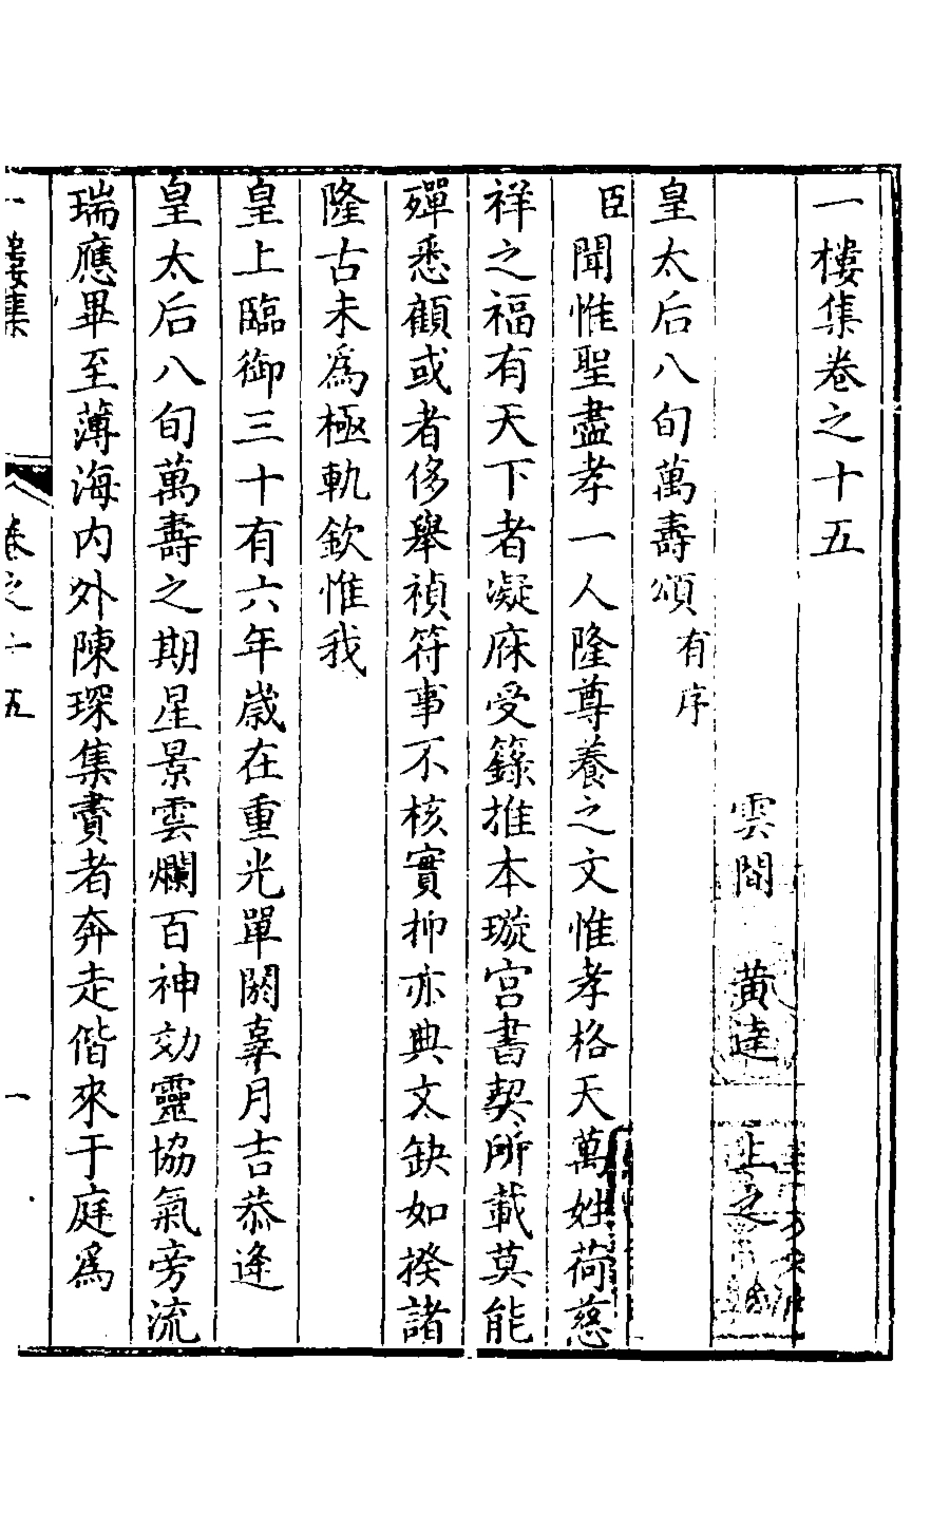 一樓集卷之十五
雲間 黄達 上之
皇太后八旬萬壽頌有序
臣聞惟聖盡孝一人隆尊養之文惟孝格天萬姓荷慈
祥之福有天下者凝庥受籙推本璇宮書契所載莫能
殫悉顧或者侈舉禎符事不核實抑亦典文缺如揆諸
隆古未爲極軌欽惟我
皇上臨御三十有六年歲在重光單閼辜月吉恭逢
皇太后八旬萬壽之期星景雲爛百神効靈協氣旁流
瑞應畢至薄海内外陳琛集賮者奔走偕來于庭爲
一樓集 卷之十五 一